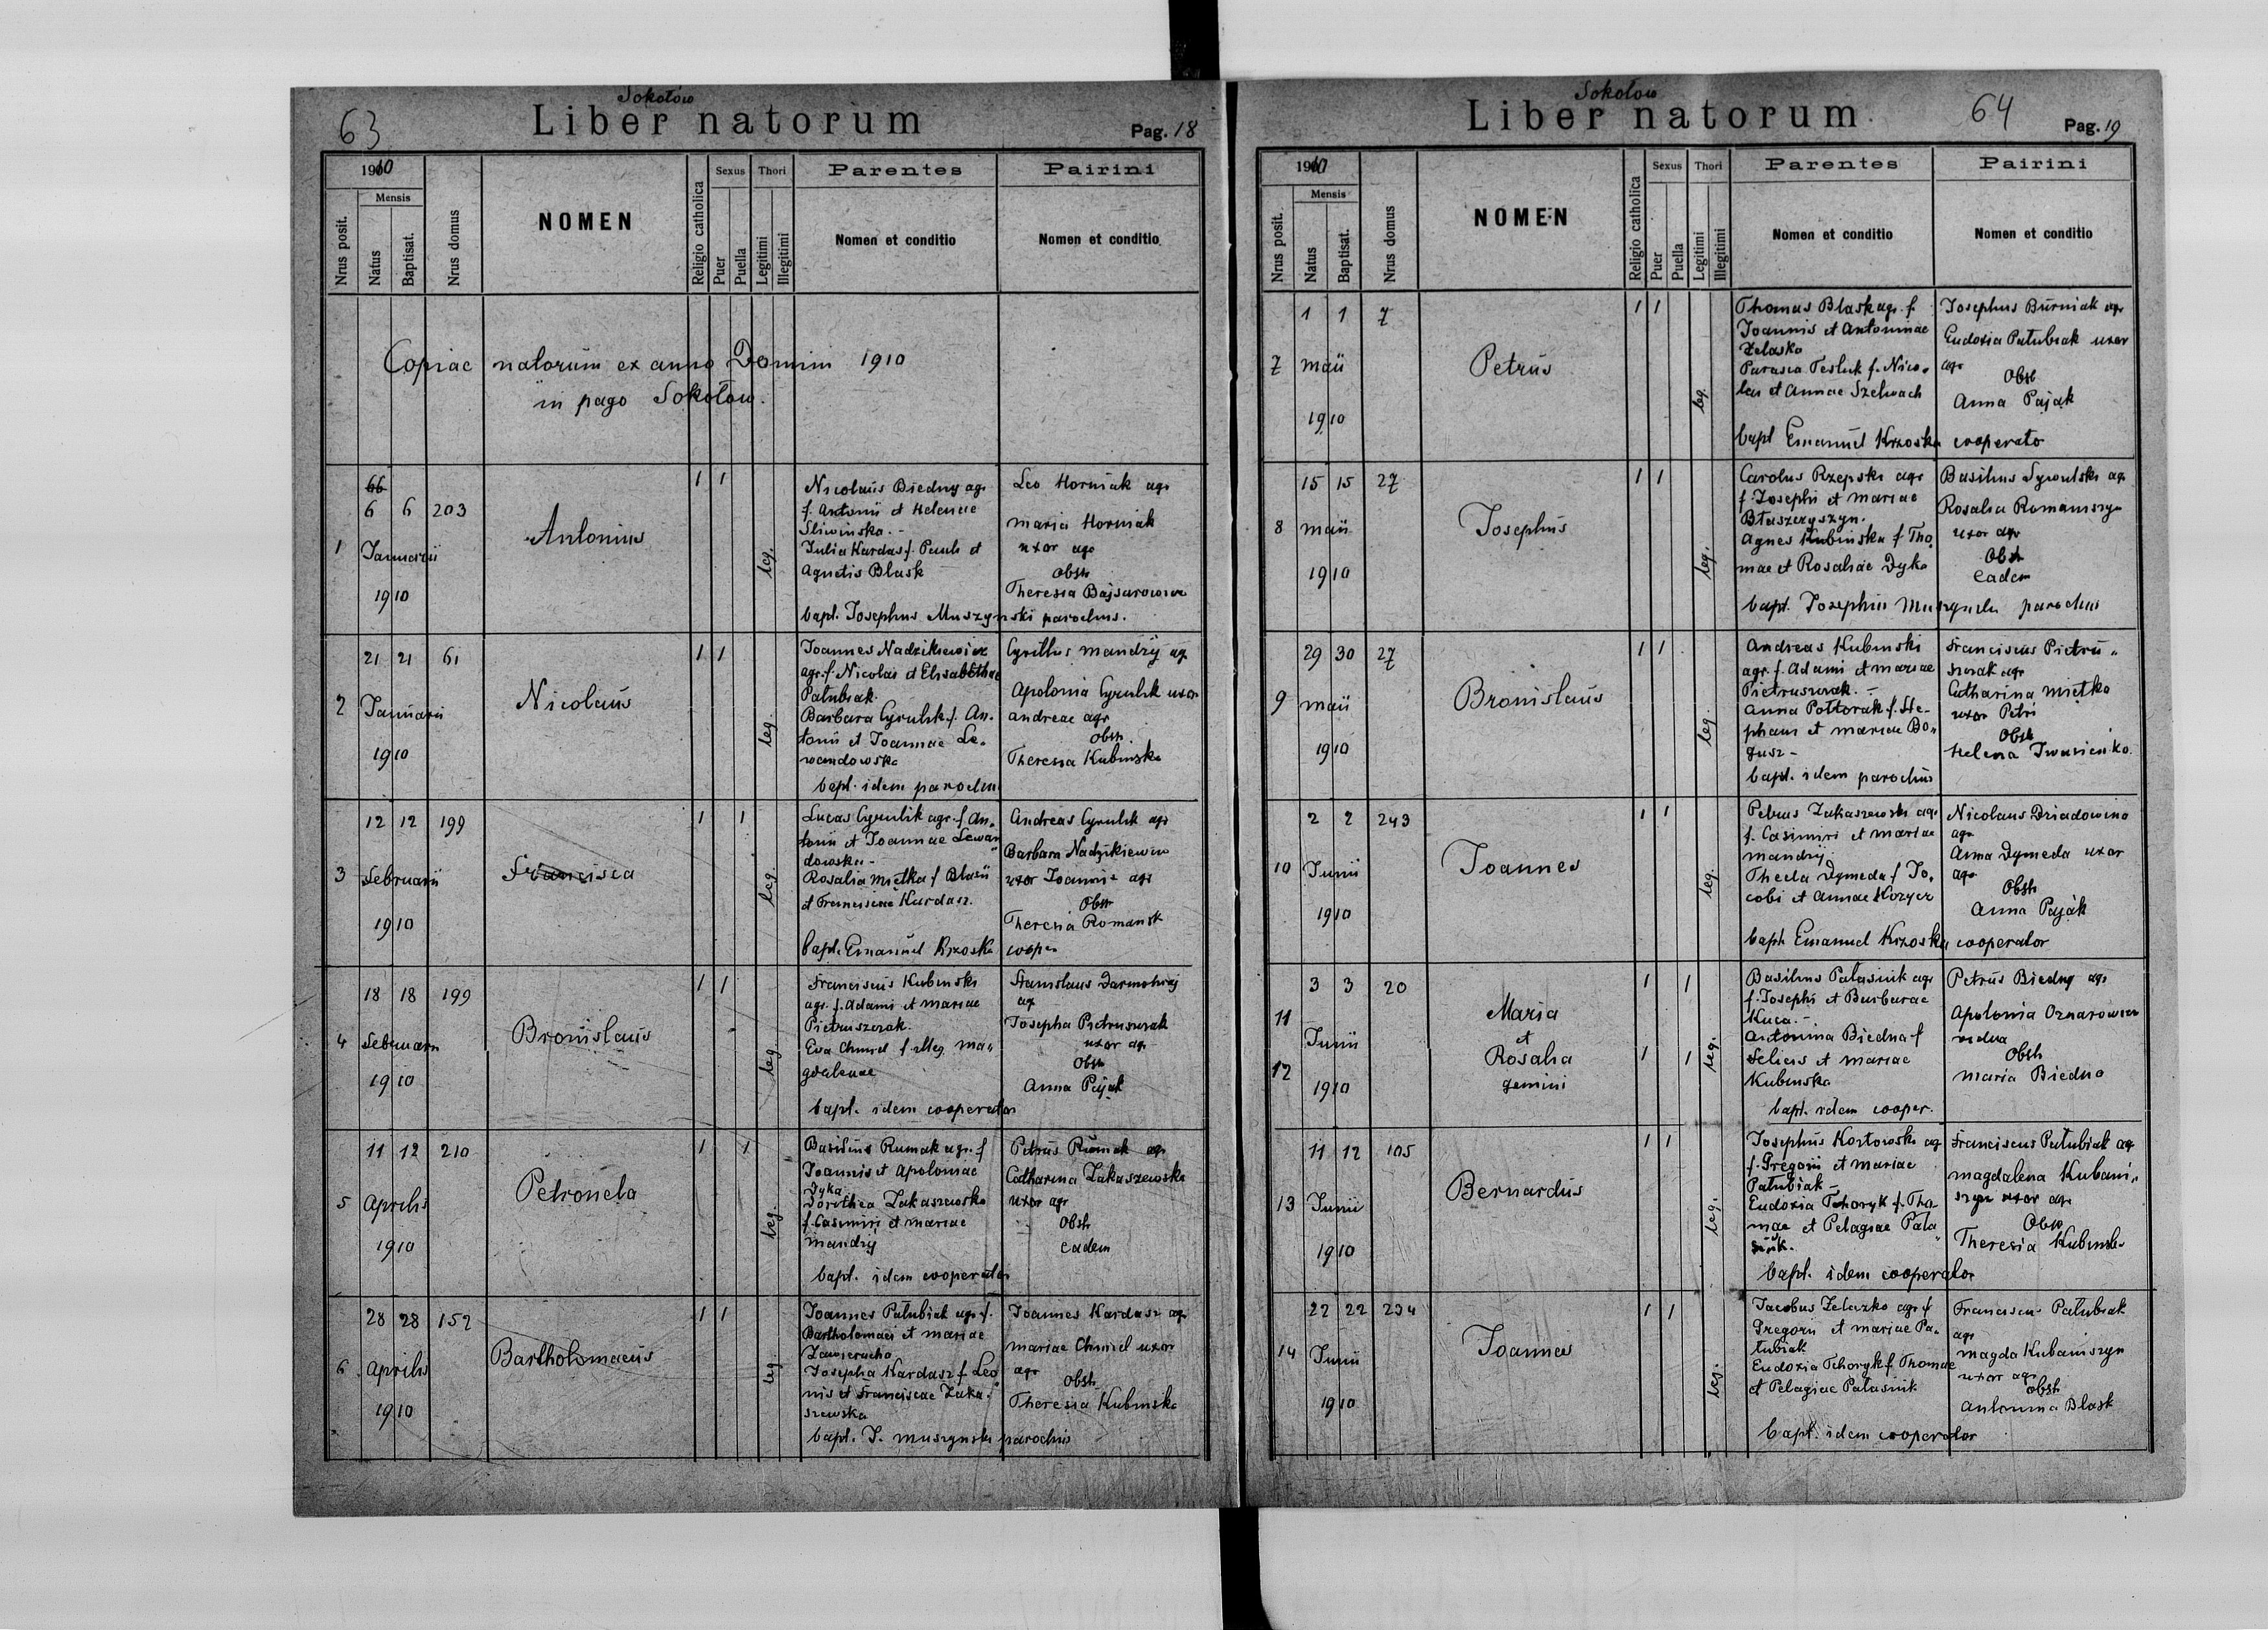 Sokołów
63
Liber natorum
Pag. 18
1910
Mensis
Nrus posit.
Natus
Baptisat.
Nrus domus
NOMEN
Religio catholica
Sexus
Puer
Puella
Thori
Legitimi
Illegitimi
Parentes
Nomen et conditio
Pairini
Nomen et conditio
Copiae natorum ex anno Domini 1910
in pago Sokołow.
1
6 6 203
Januarii
1910
Antonius
1 1
leg.
Nicolaus Biedny agr.
f. Antonii et Helenae
Sliwinska. -
Julia Kardas f. Pauli et
Agnetis Blask
Leo Horniak agr
Maria Horniak
uxor agr
Obst
Theresia
bapt. Josephus Muszynski parochus.
2
21 21 61
Januarii
1910
Nicolaus
1 1
leg.
Joannes Nadzikiewicz
agr. f. Nicolai et Elisabethae
Patubiak.
Barbara Cyrulik f. An.
tonii et Joannae Le.
wandowska
Cyrillus Mandrij agr
Apolonia Cyrulik uxor
Andreae agr
Obst
Theresia Kubinska
bapt. idem parochus
3
12 12 199
Februarii
1910
Francisca
1 1
leg.
Lucas Cyrulik agr. f An.
tonii et Joannae Lewan
dowska -
Rosalia Mietka f Blasii
et Franciscae Kardasz.
Andreas Cyrulik agr
Barbara Nadzikiewicz
uxor Joannis agr
Obst
Theresia Romansk
bapt. Emanuel Krzoska cooper
4
18 18 199
Februarii
1910
Bronislaus
1 1
leg.
Franciscus Kubinski
agr. f. Adami et Mariae
Pietruszczak.
Eva Chmiel f. illeg. Ma„
gdalenae
Stanislaus Darmohraj
agr
Josepha Pietruszczak
uxor agr
Obst
Anna Pająk
bapt. idem cooperator
5
11 12 210
Aprilis
1910
Petronela
1 1
leg.
Basilius Rumak agr. f
Joannis et Apoloniae
Dyka
Dorothea Zakaszewska
f. Casimiri et Mariae
Mandrij
Petrus Rumak agr
Catharina Zakaszewska
uxor agr
Obst
eadem
bapt. idem cooperator
6
28 28 152
Aprilis
1910
Bartholomaeus
1 1
leg.
Joannes Patubiak agr. f.
Bartholomaei et Mariae
Zawierucha
Josepha Kardasz f Leo
nis et Franciscae Zaka.
szewska
Joannes Kardasz agr
Mariae Chmiel uxor
agr
Obst
Theresia Kubinska
bapt. J. Muszynski parochus
Sokołow
Liber natorum
64
Pag. 19
1910
Mensis
Nrus posit.
Natus
Baptisat.
Nrus domus
NOMEN
Religio catholica
Sexus
Puer
Puella
Thori
Legitimi
Illegitimi
Parentes
Nomen et conditio
Pairini
Nomen et conditio
7
1 1 7
Maii
1910
Petrus
1 1
leg.
Thomas Blask agr. f.
Joannis et Antoninae
Zelasko
Parasia Tesluk f. Nico.
lai et Annae Szelwach
Josephus Burniak agr
Eudoxia Patubiak uxor
agr
Obst
Anna Pająk
bapt Emanuel Krzoska cooperato
8
15 15 27
Maii
1910
Josephus
1 1
leg.
Carolus Rzepski agr
f. Josephi et Mariae
Btaszczyszyn.
Agnes Kubinska f Tho.
mae et Rosaliae Dyka
Basilius agr
Rosalia Romaniszyn
uxor agr
Obst
eadem
bapt. Josephus Muszynski parochus
9
29 30 27
Maii
1910
Bronislaus
1 1
leg.
Andreas Kubinski
agr. f. Adami et Mariae
Pietruszczak. -
Anna Pottorak f. Ste-
phani et Mariae Bo„
gusz -
Franciscus Pietru„
szczak agr
Catharina Mietka
uxor Petri
Obst
Helena Iwasieńko.
bapt. idem parochus
10
2 2 243
Junii
1910
Joannes
1 1
leg.
Petrus Zakaszewski agr
f. Casimiri et Mariae
Mandrij
Thecla Dymeda f Ja.
cobi et Annae Kozycz
Nicolaus Dziadowicz
agr
Anna Dymeda uxor
agr
Obst
Anna Pająk
bapt Emanuel Krzoska cooperator
11
3 3 20
Junii
12
1910
Maria
et
Rosalia
gemini
1 1
1 1
leg.
Basilius Patasiuk agr
f. Josephi et Barbarae
Kuca. -
Antonina Biedna f
Felicis et Mariae
Kubinska
Petrus Biedny agr
Apolonia
vidua
Obst
Maria Biedna
bapt. idem cooper.
13
11 12 105
Junii
1910
Bernardus
1 1
leg.
Josephus Kortowski agr
f. Gregorii et Mariae
Patubiak -
Eudoxia Tchoryk f. Tho-
mae et Pelagiae Pata
siuk.
Franciscus Patubiak agr
Magdalena Kubani„
szyn uxor agr
Obst
Theresia Kubinska
bapt. idem cooperator
14
22 22 234
Junii
1910
Joannes
1 1
leg.
Jacobus Zelazko agr f
Gregorii et Mariae Pa„
tubiak
Eudoxia Tchoryk f. Thomae
et Pelagiae Patasiuk
Franciscus Patubiak
agr
Magda Kubaniszyn
uxor agr
Obst
Antonina Blask
bapt. idem cooperator